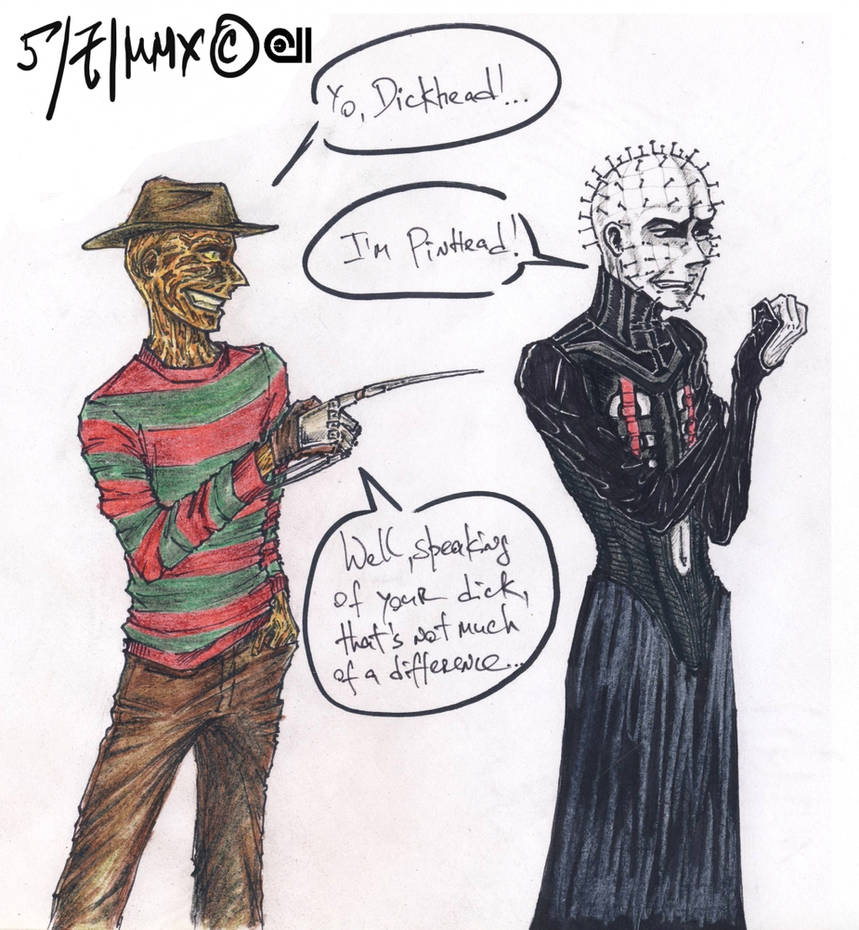 5/7/MMX ©
Yo, Dickhead!...
I'm PinHead!
Well, speaking
of your dick,
that's not much
of a difference...